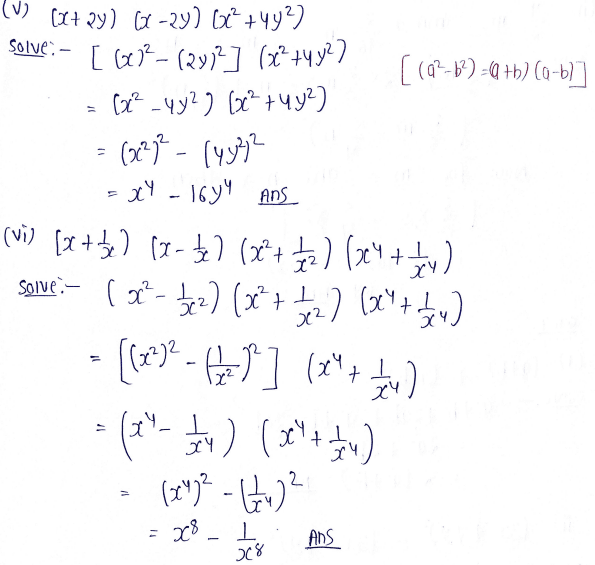 (v) (x + 2y) (x - 2y) (x² + 4y²)
Solve:- [(x)² - (2y)²] (x² + 4y²) [(a² - b²) = (a + b) (a - b)]
= (x² - 4y²) (x² + 4y²)
= (x²)² - (4y²)²
= x⁴ - 16y⁴ Ans
(vi) (x + 1/x) (x - 1/x) (x² + 1/x²) (x⁴ + 1/x⁴)
Solve:- (x² - 1/x²) (x² + 1/x²) (x⁴ + 1/x⁴)
= [(x²)² - (1/x²)²] (x⁴ + 1/x⁴)
= (x⁴ - 1/x⁴) (x⁴ + 1/x⁴)
= (x⁴)² - (1/x⁴)²
= x⁸ - 1/x⁸ Ans